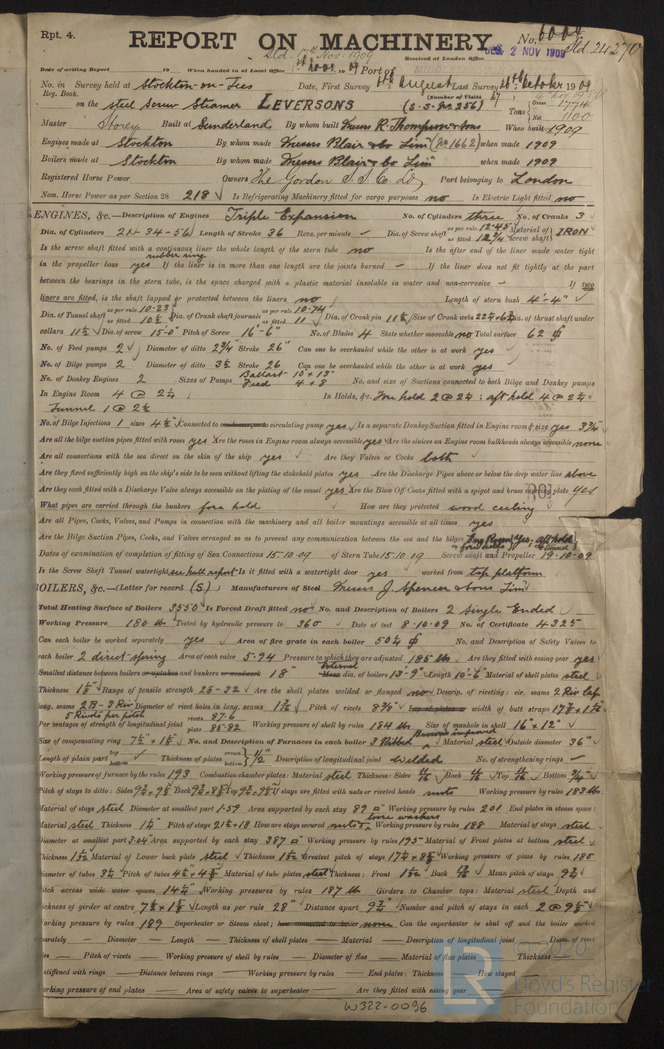 Rpt. 4.
REPORT ON MACHINERY
No. 6004
Std 24270
2 NOV 1909
Received at London Office
Date of writing Report 19 When handed in at Local Office 19 Port of
No. in Survey held at Stockton-on-Tees Date, First Survey August Last Survey October 1909
Reg. Book. (Number of Visits
on the steel Screw Steamer LEVERSONS (S.S. No 256)
Tons Gross 1774 Net 1100
Master Storey Built at Sunderland By whom built Messrs R. Thompson & Sons When built 1909
Engines made at Stockton By whom made Messrs Blair & Co Limd (No 1662) when made 1909
Boilers made at Stockton By whom made Messrs Blair & Co Limd when made 1909
Registered Horse Power Owners The Gordon S.S. Co Ld Port belonging to London
Nom. Horse Power as per Section 28 218 Is Refrigerating Machinery fitted for cargo purposes no Is Electric Light fitted no
ENGINES, &c.—Description of Engines Triple Expansion No. of Cylinders three No. of Cranks 3
Dia. of Cylinders 21-34-56 Length of Stroke 36 Revs. per minute – Dia. of Screw shaft as per rule 12.43 as fitted 12 3/4 Material of screw shaft IRON
Is the screw shaft fitted with a continuous liner the whole length of the stern tube no Is the after end of the liner made water tight
rubber ring
in the propeller boss yes If the liner is in more than one length are the joints burned – If the liner does not fit tightly at the part
between the bearings in the stern tube, is the space charged with a plastic material insoluble in water and non-corrosive – If two
liners are fitted, is the shaft lapped or protected between the liners no Length of stern bush 4'-4"
Dia. of Tunnel shaft as per rule 10.23 as fitted 10 1/2 Dia. of Crank shaft journals as per rule 10.74 as fitted 11 Dia. of Crank pin 11 1/2 Size of Crank webs Dia. of thrust shaft under
collars 11 1/2 Dia. of screw 15'-0" Pitch of Screw 16'-6" No. of Blades 4 State whether moveable no Total surface 62
No. of Feed pumps 2 Diameter of ditto 2 3/4 Stroke 26" Can one be overhauled while the other is at work yes
No. of Bilge pumps 2 Diameter of ditto 3 1/2 Stroke 26 Can one be overhauled while the other is at work yes
No. of Donkey Engines 2 Sizes of Pumps Ballast 10 + 13 Feed 4 + 8 No. and size of Suctions connected to both Bilge and Donkey pumps
In Engine Room 4 @ 2 1/2 In Holds, &c. Fore hold 2 @ 2 1/2 : aft hold 4 @ 2 1/2
Tunnel 1 @ 2 1/2
No. of Bilge Injections 1 sizes 4 1/2 Connected to circulating pump yes Is a separate Donkey Suction fitted in Engine room & size yes 3 3/4
Are all the bilge suction pipes fitted with roses yes Are the roses in Engine room always accessible yes Are the sluices on Engine room bulkheads always accessible none
Are all connections with the sea direct on the skin of the ship yes Are they Valves or Cocks both
Are they fixed sufficiently high on the ship's side to be seen without lifting the stokehold plates yes Are the Discharge Pipes above or below the deep water line above
Are they each fitted with a Discharge Valve always accessible on the plating of the vessel yes Are the Blow Off Cocks fitted with a spigot and brass covering plate yes
What pipes are carried through the bunkers fore hold How are they protected wood ceiling
Are all Pipes, Cocks, Valves, and Pumps in connection with the machinery and all boiler mountings accessible at all times yes
Are the Bilge Suction Pipes, Cocks, and Valves arranged so as to prevent any communication between the sea and the bilges
Dates of examination of completion of fitting of Sea Connections 15.10.09 of Stern Tube 15.10.09 Screw shaft and Propeller 19.10.09
Is the Screw Shaft Tunnel watertight see hull report Is it fitted with a watertight door yes worked from top platform
BOILERS, &c.—(Letter for record (S)) Manufacturers of Steel Messrs J. Spencer & Sons Limd
Total Heating Surface of Boilers 3550 Is Forced Draft fitted no No. and Description of Boilers 2 Single Ended
Working Pressure 180 lbs Tested by hydraulic pressure to 360 Date of test 8.10.09 No. of Certificate 4325
Can each boiler be worked separately yes Area of fire grate in each boiler 50 1/2 No. and Description of Safety Valves to
each boiler 2 direct spring Area of each valve 5.94 Pressure to which they are adjusted 185 lbs Are they fitted with easing gear yes
Smallest distance between boilers or uptakes and bunkers or woodwork 18" Internal dia. of boilers 13'-9" Length 10'-6" Material of shell plates steel
Thickness Range of tensile strength 28-32 Are the shell plates welded or flanged no Descrip. of riveting: cir. seams 2 Riv lap
long. seams 2 B-3 Riv Diameter of rivet holes in long. seams Pitch of rivets Lap of plates or width of butt straps
5 Rivets per pitch
Per centages of strength of longitudinal joint rivets 87.6 plate 85.82 Working pressure of shell by rules 184 lbs Size of manhole in shell 16" + 12"
Size of compensating ring No. and Description of Furnaces in each boiler 3 Ribbed Material steel Outside diameter 36"
Length of plain part top bottom Thickness of plates crown bottom 1/2" Description of longitudinal joint welded No. of strengthening rings –
Working pressure of furnace by the rules 193 Combustion chamber plates: Material steel Thickness: Sides Back Top Bottom
Pitch of stays to ditto: Sides Back Top If stays are fitted with nuts or riveted heads nuts Working pressure by rules 183 lbs
Material of stays steel Diameter at smallest part 1.59 Area supported by each stay 89 Working pressure by rules 201 End plates in steam space:
Material steel Thickness Pitch of stays 21 1/2 + 18 How are stays secured nuts & loose washers Working pressure by rules 188 Material of stays steel
Diameter at smallest part Area supported by each stay 387 Working pressure by rules 195 Material of Front plates at bottom steel
Thickness Material of Lower back plate steel Thickness Greatest pitch of stays Working pressure of plate by rules 180
Diameter of tubes 3 1/4 Pitch of tubes Material of tube plates steel Thickness: Front Back Mean pitch of stays
Pitch across wide water spaces 14 1/2 Working pressures by rules 187 lbs Girders to Chamber tops: Material steel Depth and
thickness of girder at centre Length as per rule 28" Distance apart Number and pitch of stays in each
Working pressure by rules 189 Superheater or Steam chest; how connected to boiler none Can the superheater be shut off and the boiler worked
separately – Diameter – Length – Thickness of shell plates – Material – Description of longitudinal joint – Diam. of rivet
holes – Pitch of rivets – Working pressure of shell by rules – Diameter of flue – Material of flue plates – Thickness
If stiffened with rings – Distance between rings – Working pressure by rules – End plates: Thickness – How stayed
Working pressure of end plates – Area of safety valves to superheater – Are they fitted with easing gear
© 2020
LR
Lloyd's Register
Foundation
W322-0096